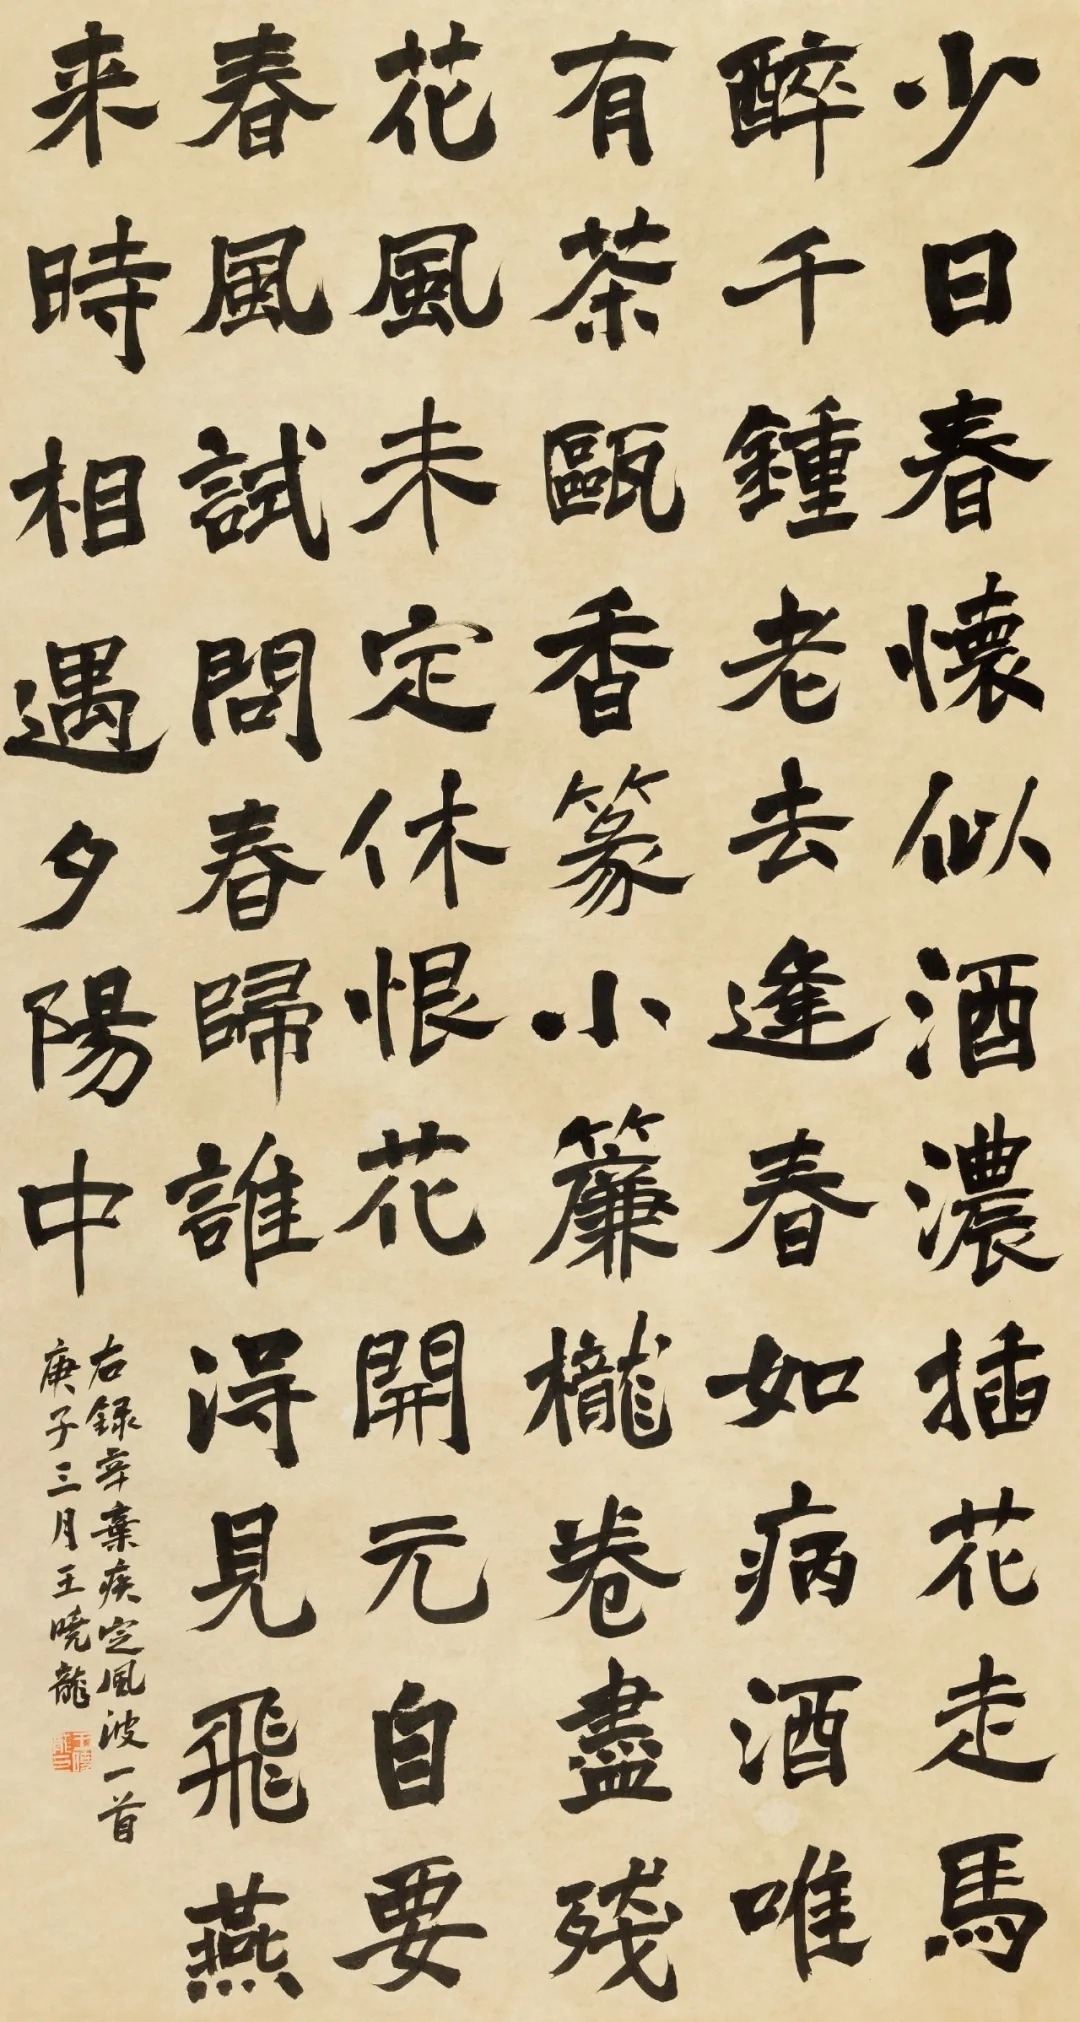 少日春懷似酒濃插花走馬
醉千鍾老去逢春如病酒唯
有茶甌香篆小簾櫳卷盡殘
花風未定休恨花開元自要
春風試問春歸誰得見飛燕
来時相遇夕陽中
右録辛棄疾定風波一首
庚子三月王曉龍